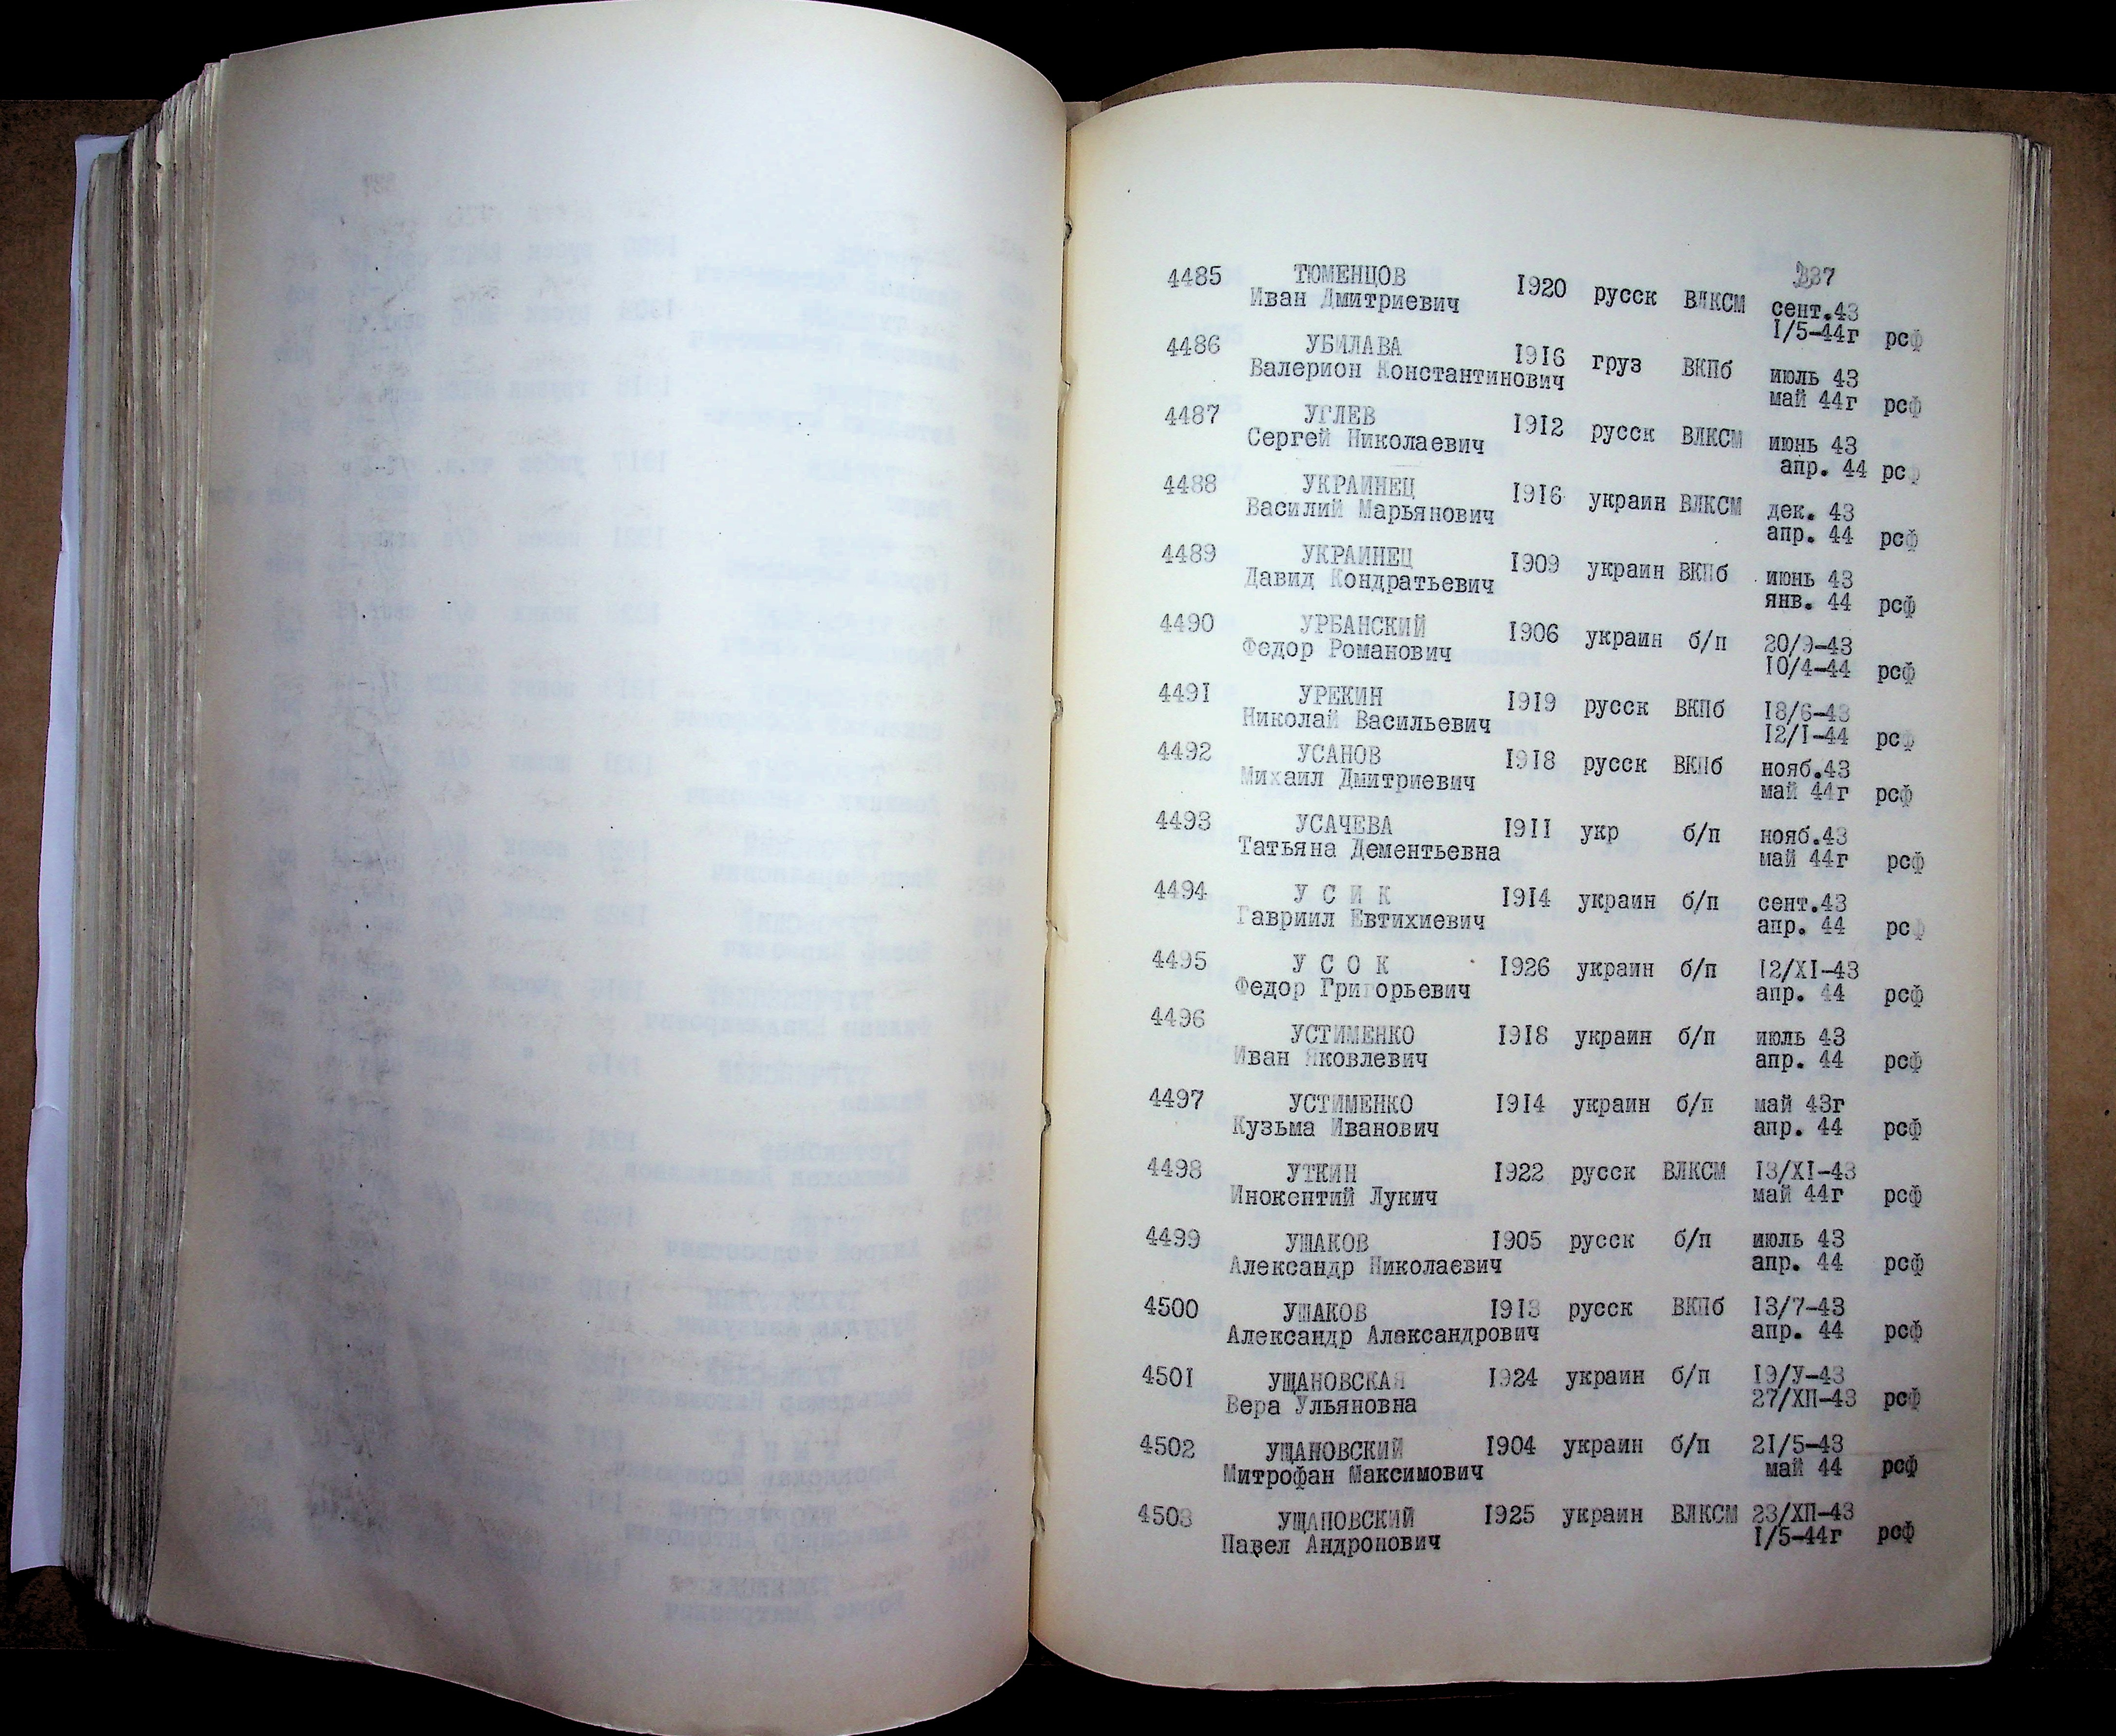 337
4485 ТЮМЕНЦОВ 1920 русск ВЛКСМ сент.43
Иван Дмитриевич 1/5-44г рсф
4486 УБИЛАВА 1916 груз ВКПб июль 43
Валерион Константинович май 44г рсф
4487 УГЛЕВ 1912 русск ВЛКСМ июнь 43
Сергей Николаевич апр. 44 рсф
4488 УКРАИНЕЦ 1916 украин ВЛКСМ дек. 43
Василий Марьянович апр. 44 рсф
4489 УКРАИНЕЦ 1909 украин ВКПб июнь 43
Давид Кондратьевич янв. 44 рсф
4490 УРБАНСКИЙ 1906 украин б/п 20/9-43
Федор Романович 10/4-44 рсф
4491 УРЕКИН 1919 русск ВКПб 18/6-43
Николай Васильевич 12/1-44 рсф
4492 УСАНОВ 1918 русск ВКПб нояб.43
Михаил Дмитриевич май 44г рсф
4493 УСАЧЕВА 1911 укр б/п нояб.43
Татьяна Дементьевна май 44г рсф
4494 У С И К 1914 украин б/п сент.43
Гавриил Евтихиевич апр. 44 рсф
4495 У С О К 1926 украин б/п 12/XI-43
Федор Григорьевич апр. 44 рсф
4496 УСТИМЕНКО 1918 украин б/п июль 43
Иван Яковлевич апр. 44 рсф
4497 УСТИМЕНКО 1914 украин б/п май 43г
Кузьма Иванович апр. 44 рсф
4498 УТКИН 1922 русск ВЛКСМ 13/XI-43
Инокентий Лукич май 44г рсф
4499 УШАКОВ 1905 русск б/п июль 43
Александр Николаевич апр. 44 рсф
4500 УШАКОВ 1913 русск ВКПб 13/7-43
Александр Александрович апр. 44 рсф
4501 УЩАНОВСКАЯ 1924 украин б/п 19/У-43
Вера Ульяновна 27/ХП-43 рсф
4502 УЩАНОВСКИЙ 1904 украин б/п 21/5-43
Митрофан Максимович май 44 рсф
4503 УЩАПОВСКИЙ 1925 украин ВЛКСМ 23/ХП-43
Павел Андронович 1/5-44г рсф